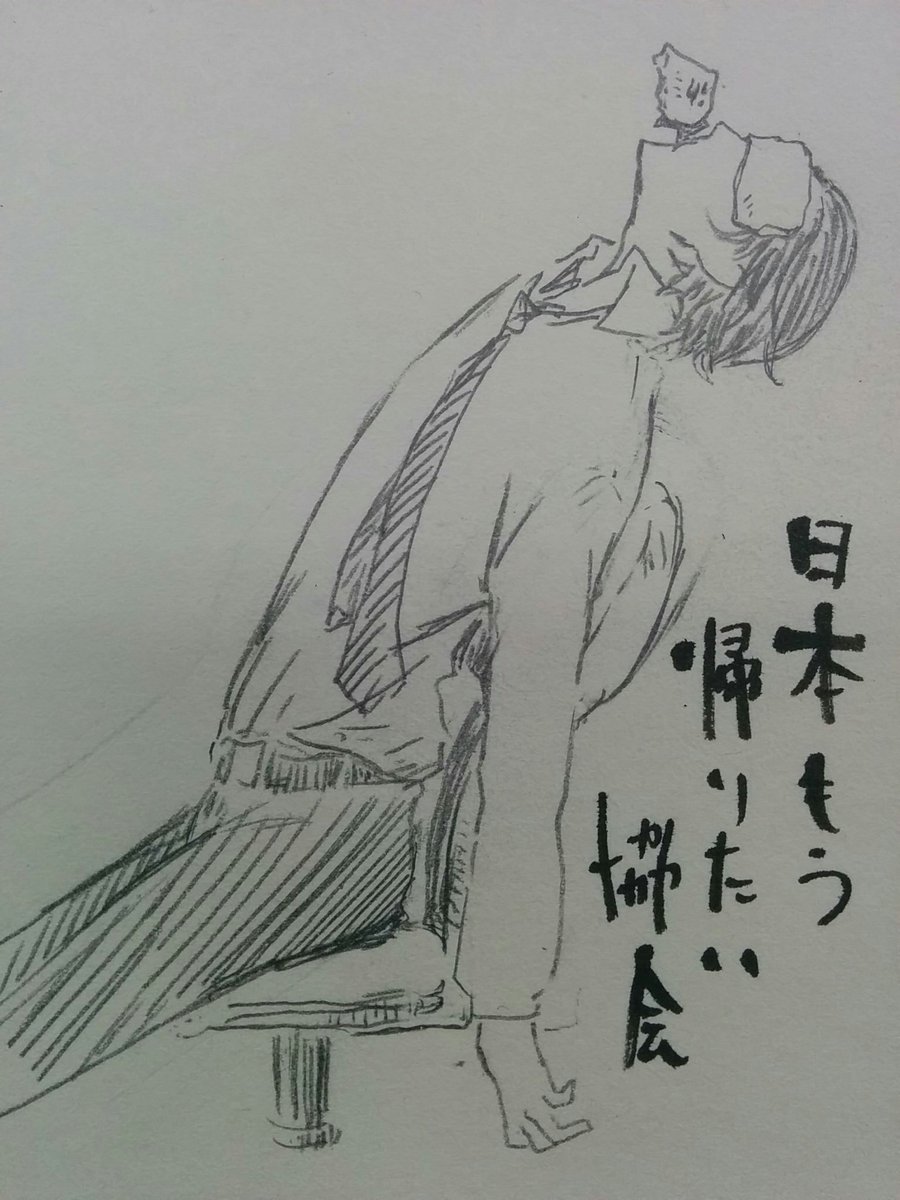 日本もう
帰りたい
協会